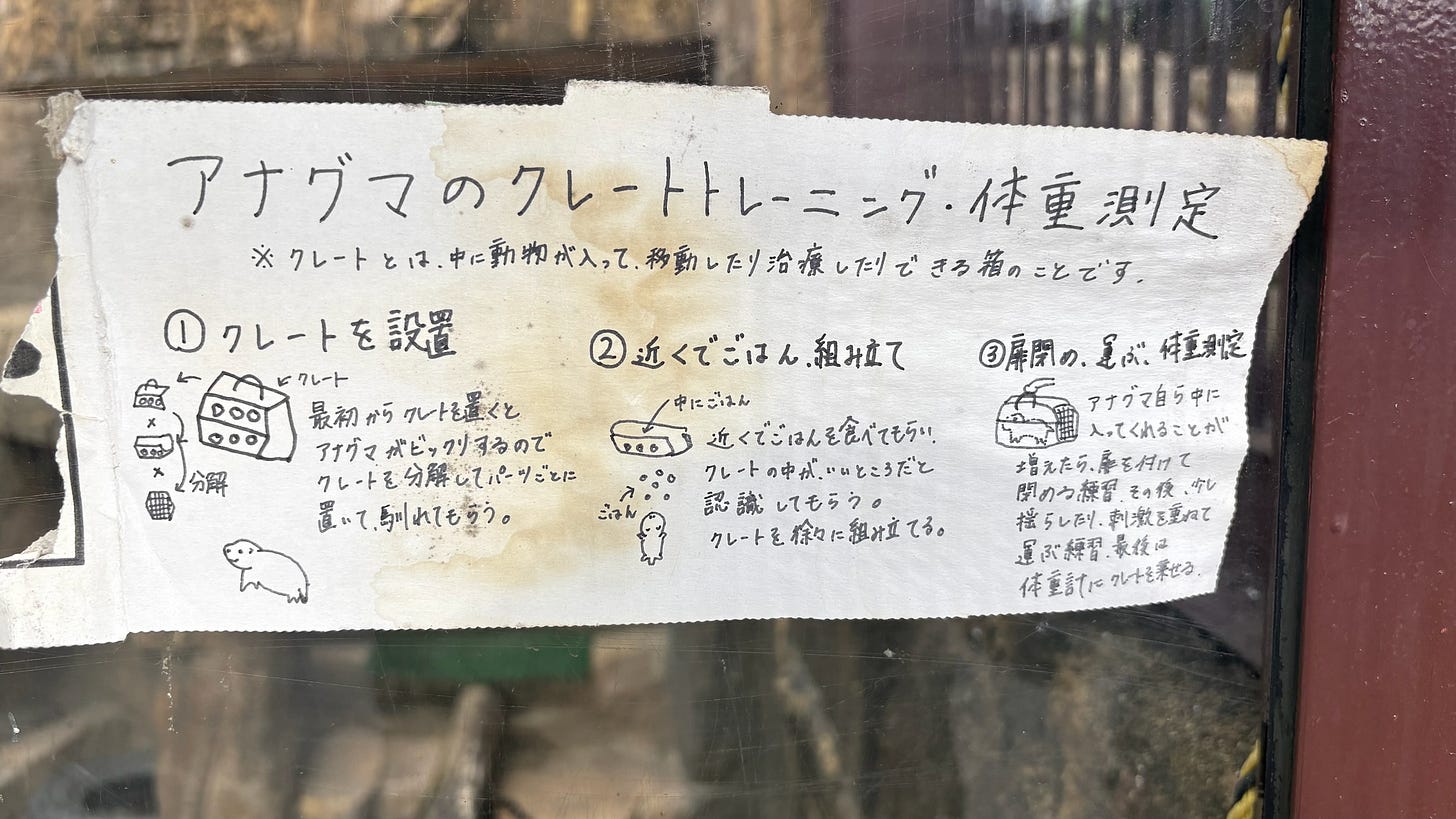 アナグマのクレートトレーニング・体重測定
※クレートとは、中に動物が入って、移動したり治療したりできる箱のことです.
①クレートを設置
クレート
分解
最初からクレートを置くと
アナグマがビックリするので
クレートを分解してパーツごとに
置いて、馴れてもらう。
②近くでごはん、組み立て
中にごはん
ごはん
近くでごはんを食べてもらい、
クレートの中が、いいところだと
認識してもらう。
クレートを徐々に組み立てる。
③扉閉め、運ぶ、体重測定
アナグマ自ら中に
入ってくれることが
増えたら、扉を付けて
閉める練習、その後、少し
揺らしたり、刺激を重ねて
運ぶ練習、最後は
体重計にクレートを乗せる.